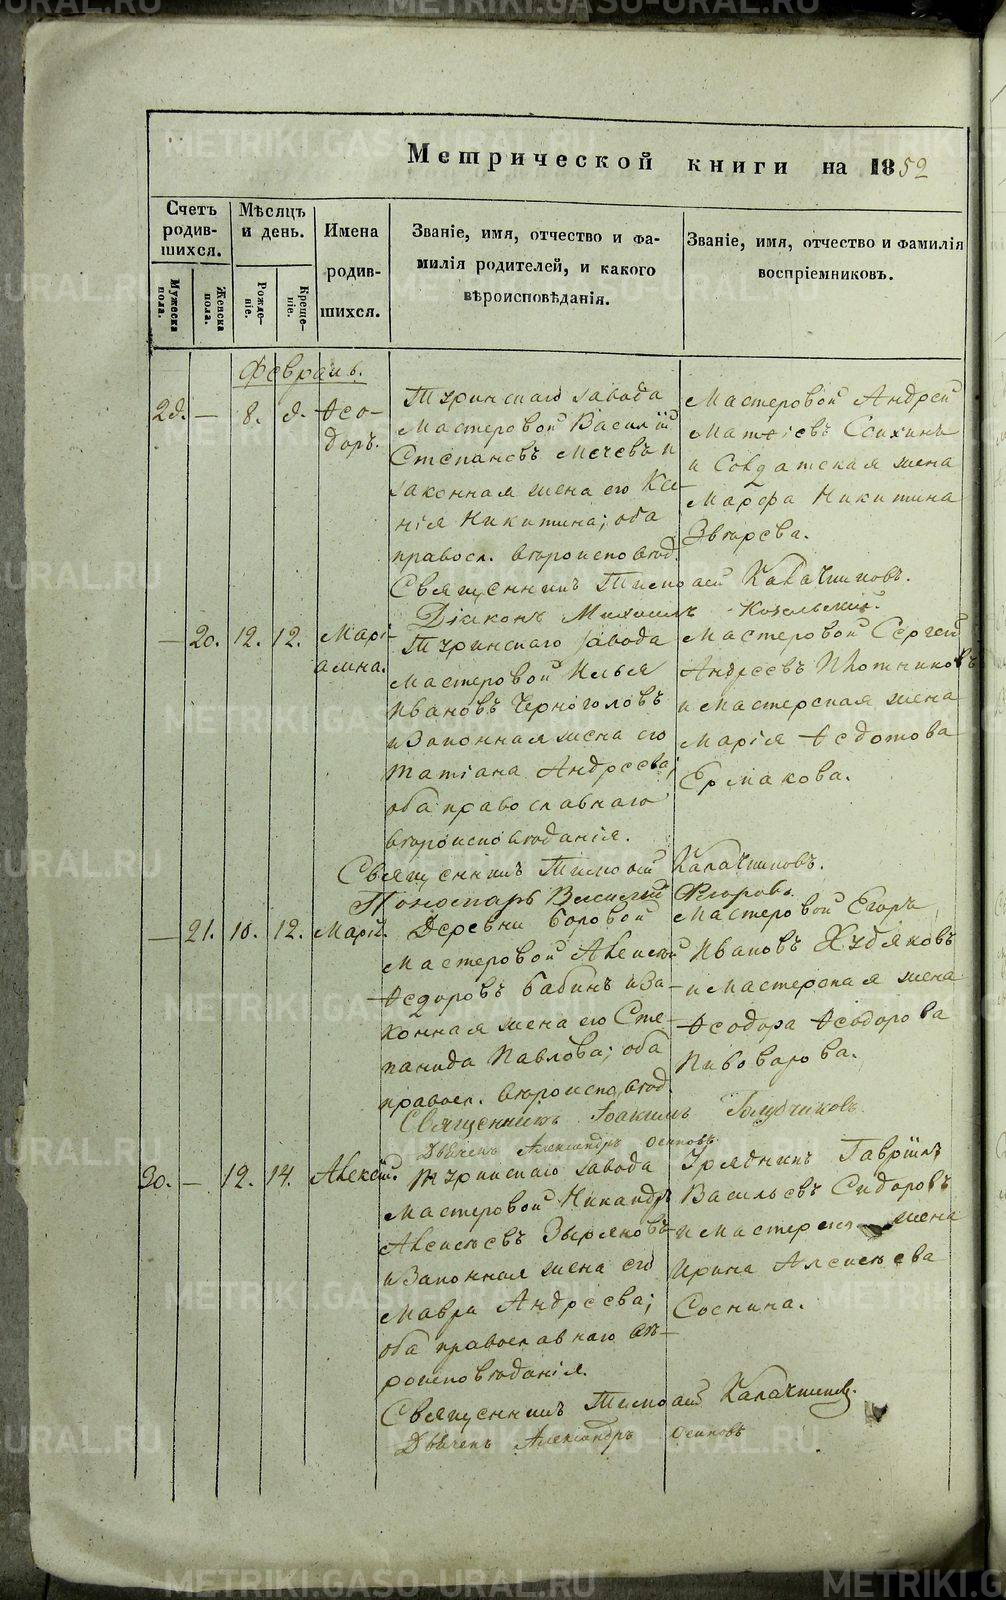 METRIKI.GASO-URAL.RU
Метрической книги на 1852
Счетъ родив-шихся.
Мѣсяцъ и день.
Имена родив-шихся.
Званіе, имя, отчество и фа-
милія родителей, и какого
вѣроисповѣданія.
Званіе, имя, отчество и фамилія
воспріемниковъ.
Мужеска пола.
Женска пола.
Рожде-ніе.
Креще-ніе.
Февраль.
29. — 8. 9. Ѳео-
доръ.
Туринскаго завода
Мастеровой Василій
Степановъ Мечевъ и
законная жена его Ксе-
нія Никитина; оба
правосл. вѣроисповѣд.
Мастеровой Андрей
Матѳіевъ
и Солдатская жена
Марѳа Никитина
Звѣрева.
Священникъ Тимоѳей Калачниковъ.
Діаконъ Михаилъ Козельскій.
— 20. 12. 12. Марі-
амна.
Туринскаго завода
Мастеровой Илья
Ивановъ Черноголовъ
и Законная жена его
Татіана Андреева;
оба православнаго
вѣроисповѣданія.
Мастеровой Сергей
Андреевъ Плотниковъ
и Мастерская жена
Марія Ѳедотова
Ермакова.
Священникъ Тимоѳей Калачниковъ.
Пономарь Василій Флоровъ.
— 21. 10. 12. Марія.
Деревни Боровой
Мастеровой Алексѣй
Ѳедоровъ Бабинъ и За-
конная жена его Сте-
панида Павлова; оба
правосл. вѣроисповѣд.
Мастеровой Егоръ
Ивановъ Худяковъ
и Мастерская жена
Ѳеодора Ѳеодорова
Пивоварова.
Священникъ Іоакимъ Голубчиковъ
Дьячекъ Александръ Осиповъ.
30. — 12. 14. Алексій.
Туринскаго завода
Мастеровой Никандръ
Алексѣевъ Зыряновъ
и Законная жена его
Мавра Андреева;
оба православнаго вѣ-
роисповѣданія.
Урядникъ Гавріилъ
Васильевъ Сидоровъ
и Мастерская жена
Ирина Алексѣева
Соснина.
Священникъ Тимоѳей Калачниковъ.
Дьячекъ Александръ Осиповъ